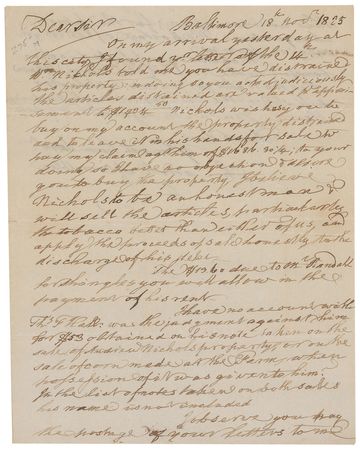 Dear Sir Baltimore 18th Nov. 1825
On my arrival yesterday at
this city I found yr letter of the 14th
Wm Nichols told me you have distrained
his property, in doing so you acted judiciously
the articles distrained are valued to appraisement
Nichols wishes you to
buy on my account the property distrained
and to leave it in his hands for sale to
pay my claim agt him of to your
doing so I have no objection I desire
you to buy the property, I believe
Nichols to be an honest man &
will sell the articles, particularly
the tobacco better than either of us, and
apply the proceeds of sale honestly to the
discharge of his debt.
The $13.60 due to Mr Randall
for shingles you will allow in the
payment of his rent
I have no account with
Thos was the judgment against him
for $53 obtained on his note taken on the
sale of Andrew Nichols property, or on the
sale of corn made at the Farm, when
possession of it was given to him.
In the list of notes taken on both sales
his name is not included
I observe you pay
the postage of your letters to me